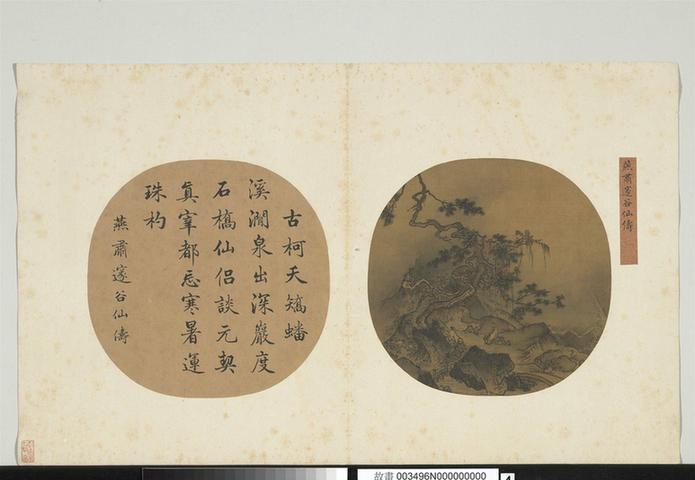 燕肅邃谷仙儔
古柯夭矯蟠
溪澗泉出深巖度
石橋仙侶談元契
真宰都忘寒暑運
珠杓
燕肅邃谷仙儔
故畫 003496N000000000
4